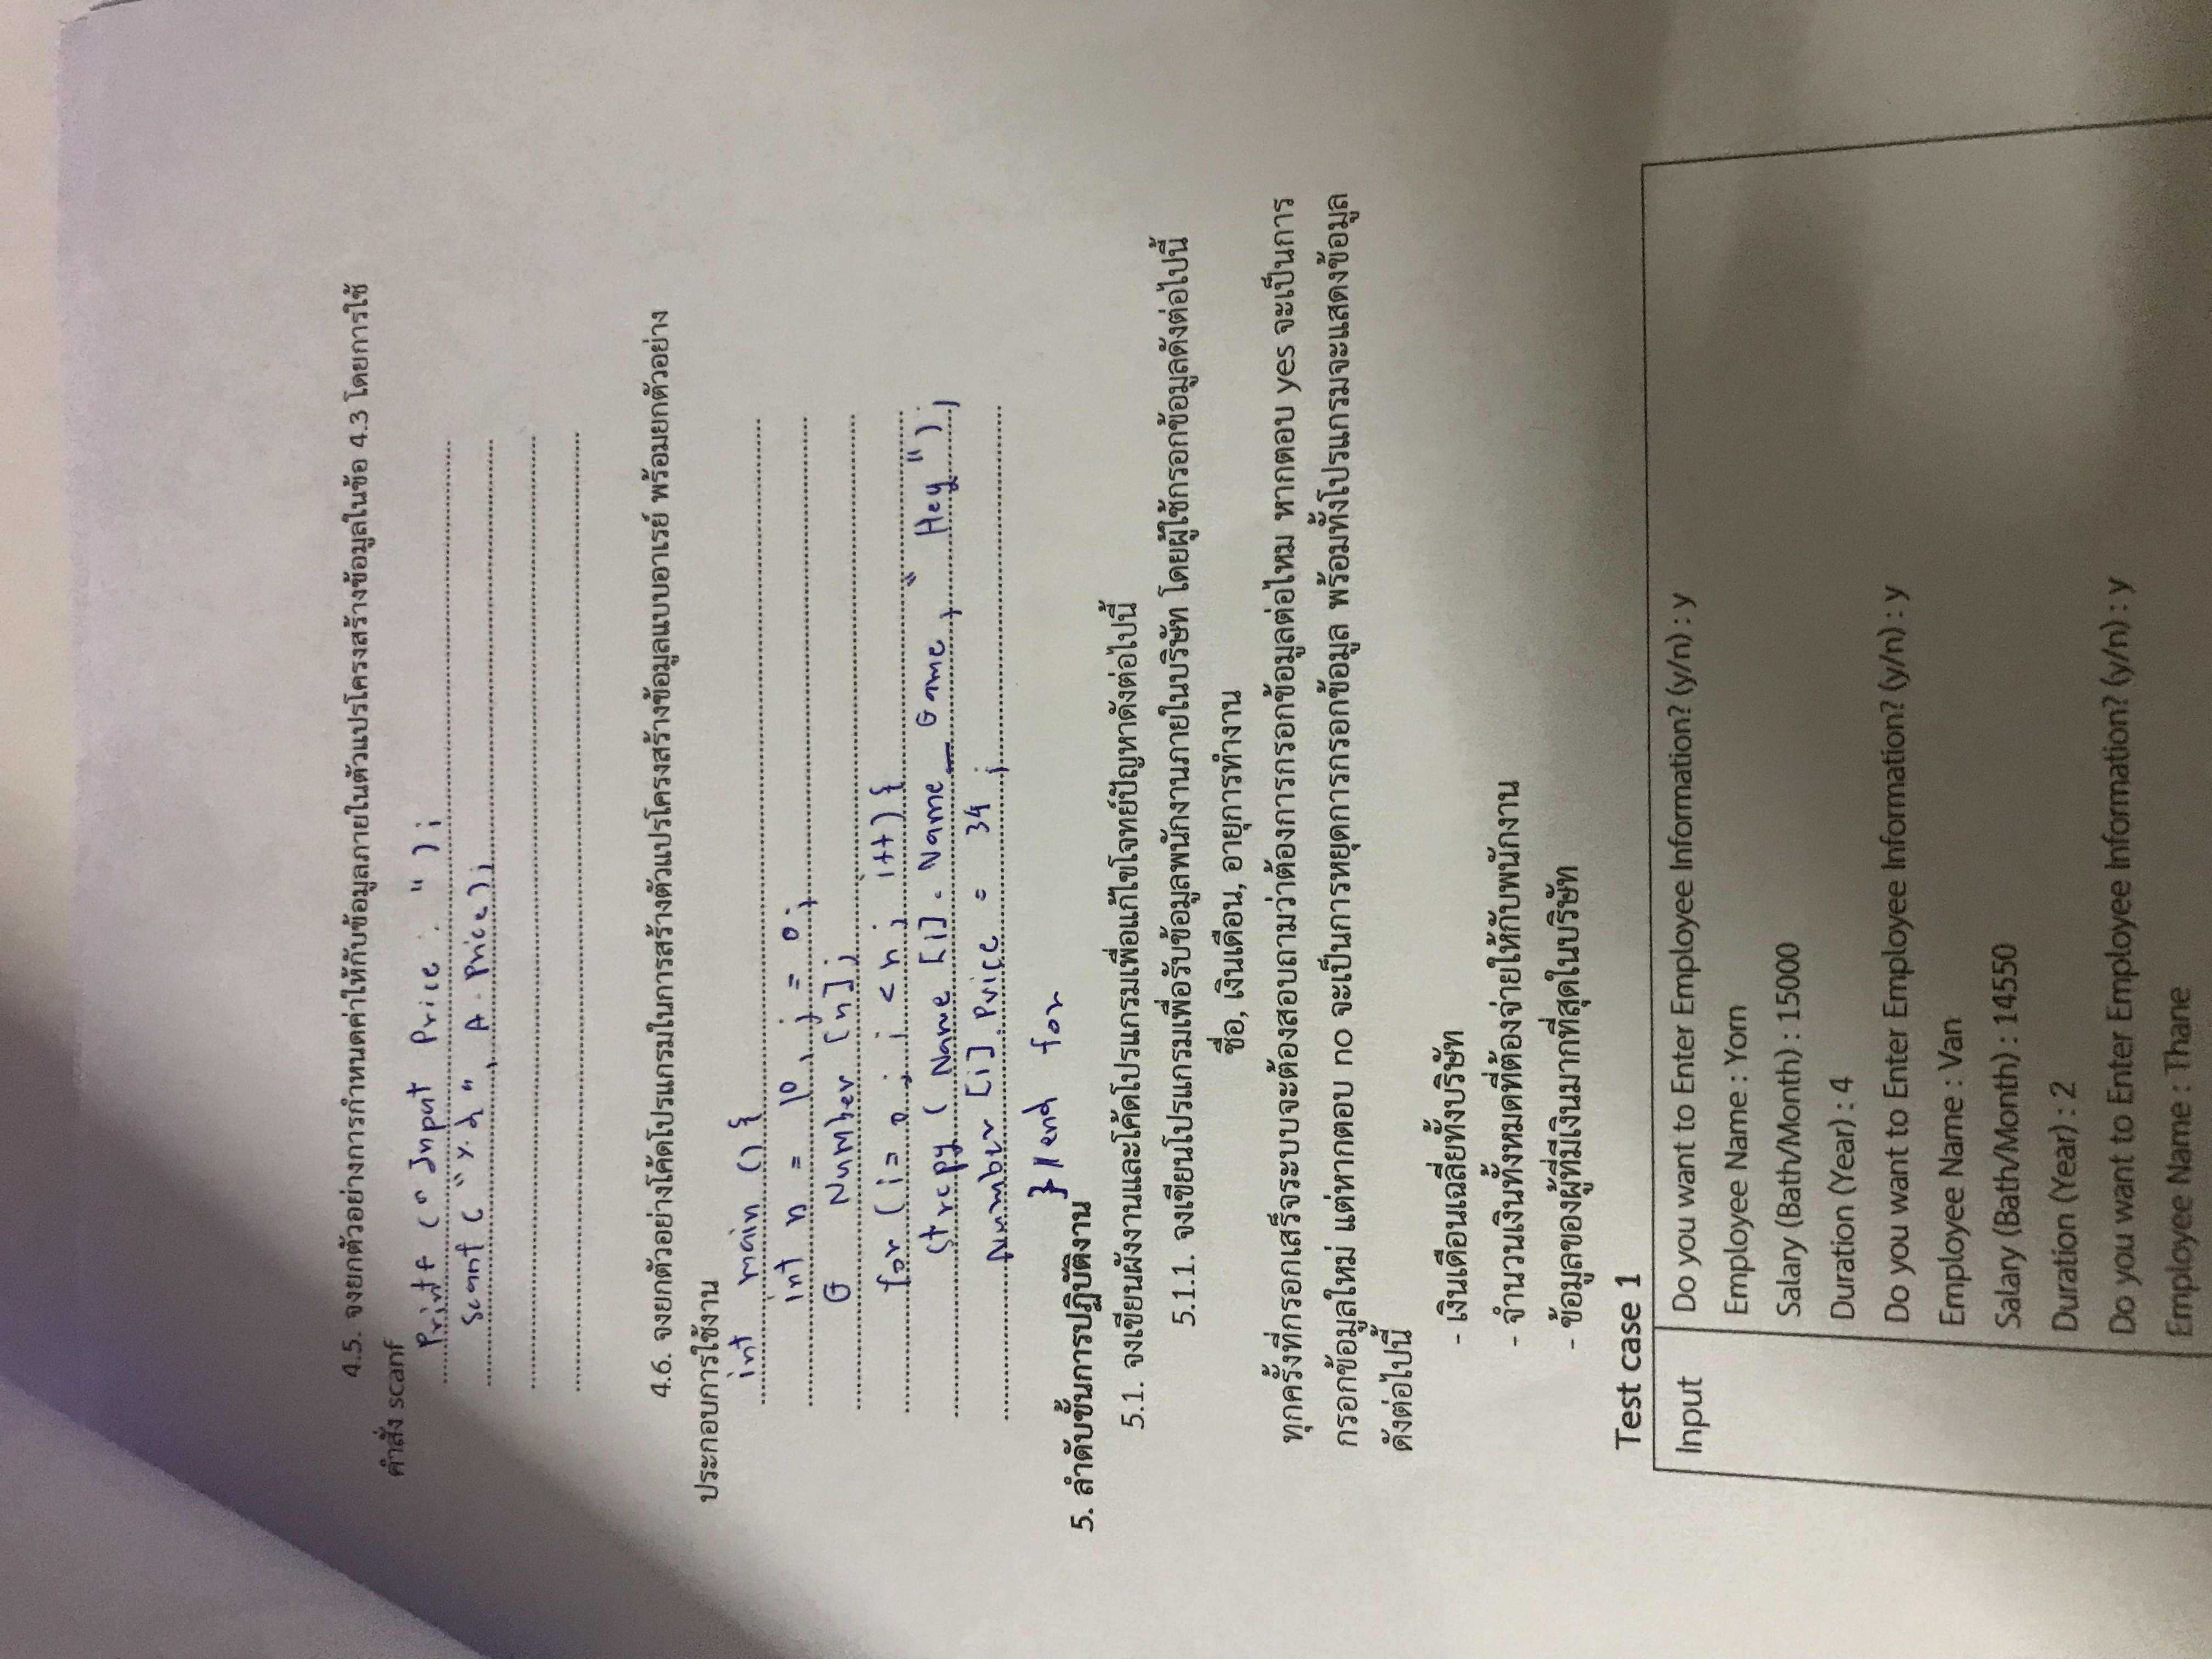 4.5. จงยกตัวอย่างการกำหนดค่าให้กับข้อมูลภายในตัวแปรโครงสร้างข้อมูลในข้อ 4.3 โดยการใช้
คำสั่ง scanf
Printf (" Input Price : " );
Scanf ( "%d", A.Price);
4.6. จงยกตัวอย่างโค้ดโปรแกรมในการสร้างตัวแปรโครงสร้างข้อมูลแบบอาเรย์ พร้อมยกตัวอย่าง
ประกอบการใช้งาน
int main () {
int n = 10, j = 0;
G Number [n];
for (i= 0 ; i < n; i++) {
Strcpy ( Name [i]. Name_Game, " Hey ");
Number [i].Price = 34 ;
} // end for
5. ลำดับขั้นการปฏิบัติงาน
5.1. จงเขียนผังงานและโค้ดโปรแกรมเพื่อแก้ไขโจทย์ปัญหาดังต่อไปนี้
5.1.1. จงเขียนโปรแกรมเพื่อรับข้อมูลพนักงานภายในบริษัท โดยผู้ใช้กรอกข้อมูลดังต่อไปนี้
ชื่อ, เงินเดือน, อายุการทำงาน
ทุกครั้งที่กรอกเสร็จระบบจะต้องสอบถามว่าต้องการกรอกข้อมูลต่อไหม หากตอบ yes จะเป็นการ
กรอกข้อมูลใหม่ แต่หากตอบ no จะเป็นการหยุดการกรอกข้อมูล พร้อมทั้งโปรแกรมจะแสดงข้อมูล
ดังต่อไปนี้
- เงินเดือนเฉลี่ยทั้งบริษัท
- จำนวนเงินทั้งหมดที่ต้องจ่ายให้กับพนักงาน
- ข้อมูลของผู้ที่มีเงินมากที่สุดในบริษัท
Test case 1
Input
Do you want to Enter Employee Information? (y/n) : y
Employee Name : Yorn
Salary (Bath/Month) : 15000
Duration (Year) : 4
Do you want to Enter Employee Information? (y/n) : y
Employee Name : Van
Salary (Bath/Month) : 14550
Duration (Year) : 2
Do you want to Enter Employee Information? (y/n) : y
Employee Name : Thane